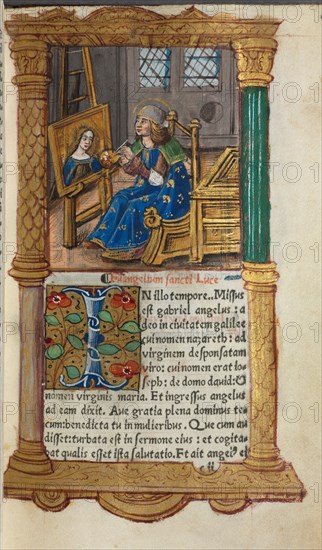 Evangelium sancti Luce
IN illo tempore. Missus
est gabriel angelus: a
deo in civitatem galilee
cui nomen nazareth: ad
virginem desponsatam
viro: cui nomen erat io-
seph: de domo david: et
nomen virginis maria. Et ingressus angelus
ad eam dixit. Ave gratia plena dominus te-
cum: benedicta tu in mulieribus. Que cum au
disset: turbata est in sermone eius: et cogita-
bat qualis esset ista salutatio. Et ait angel